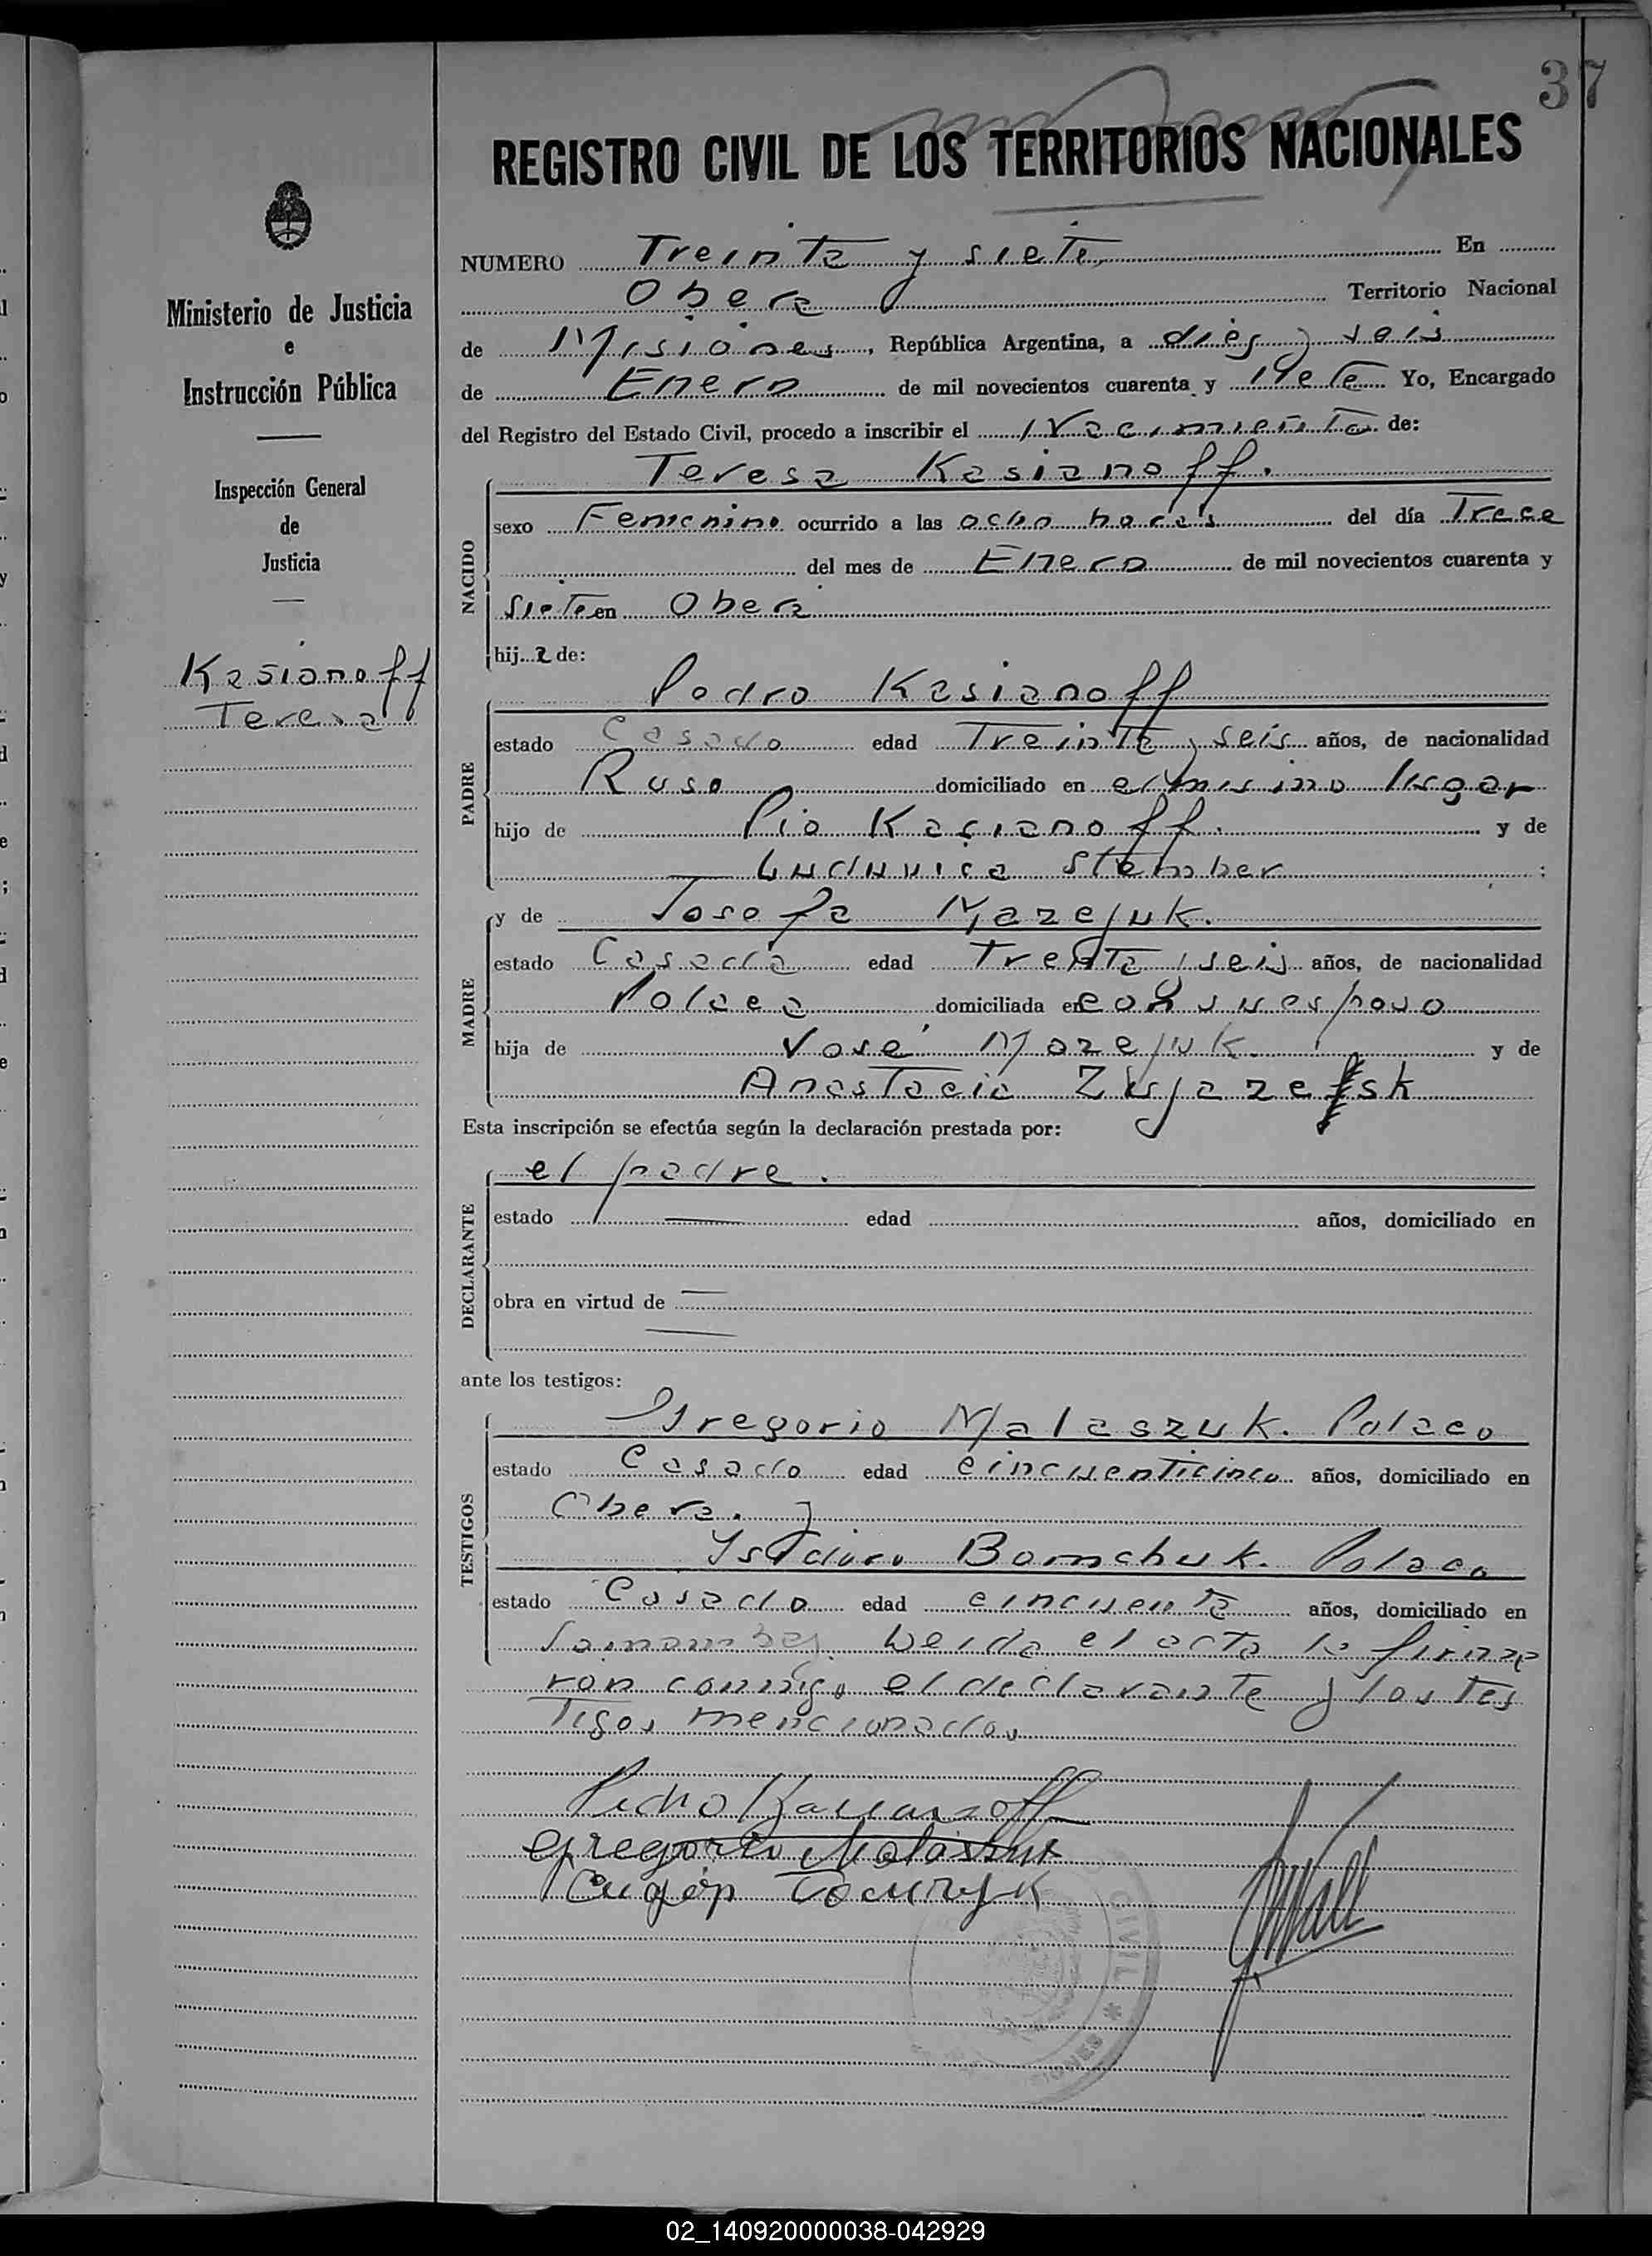 37
REGISTRO CIVIL DE LOS TERRITORIOS NACIONALES
Ministerio de Justicia
e
Instrucción Pública
Inspección General
de
Justicia
Kasianoff
Teresa
NUMERO Treinta y siete, En
Obera Territorio Nacional
de Misiones, República Argentina, a dies y seis
de Enero de mil novecientos cuarenta y siete Yo, Encargado
del Registro del Estado Civil, procedo a inscribir el Nacimiento de:
Teresa Kasianoff.
NACIDO
sexo Femenino ocurrido a las ocho horas del día Trece
del mes de Enero de mil novecientos cuarenta y
siete en Obera
hija de:
Pedro Kasianoff
PADRE
estado Casado edad Treinta y seis años, de nacionalidad
Ruso domiciliado en el mismo lugar
hijo de Pio Kasianoff. y de
Luduvica Stember ;
MADRE
y de Josefa Mazejuk.
estado Casada edad Treinta y seis años, de nacionalidad
Polaca domiciliada en con su esposo
hija de José Mazejuk. y de
Anastacia
Esta inscripción se efectúa según la declaración prestada por:
DECLARANTE
el padre.
estado — edad años, domiciliado en
obra en virtud de —
—
ante los testigos:
TESTIGOS
Gregorio Malaszuk. Polaco
estado Casado edad cincuenticinco años, domiciliado en
Obera. y
Ysidoro Bomchuk. Polaco
estado Casado edad cincuenta años, domiciliado en
Leida el acta la firma
ron conmigo el declarante y los tes
tigos mencionados
Pedro Kasianoff
Gregorio Malaszuk
CIVIL * MISIONES
02_140920000038-042929